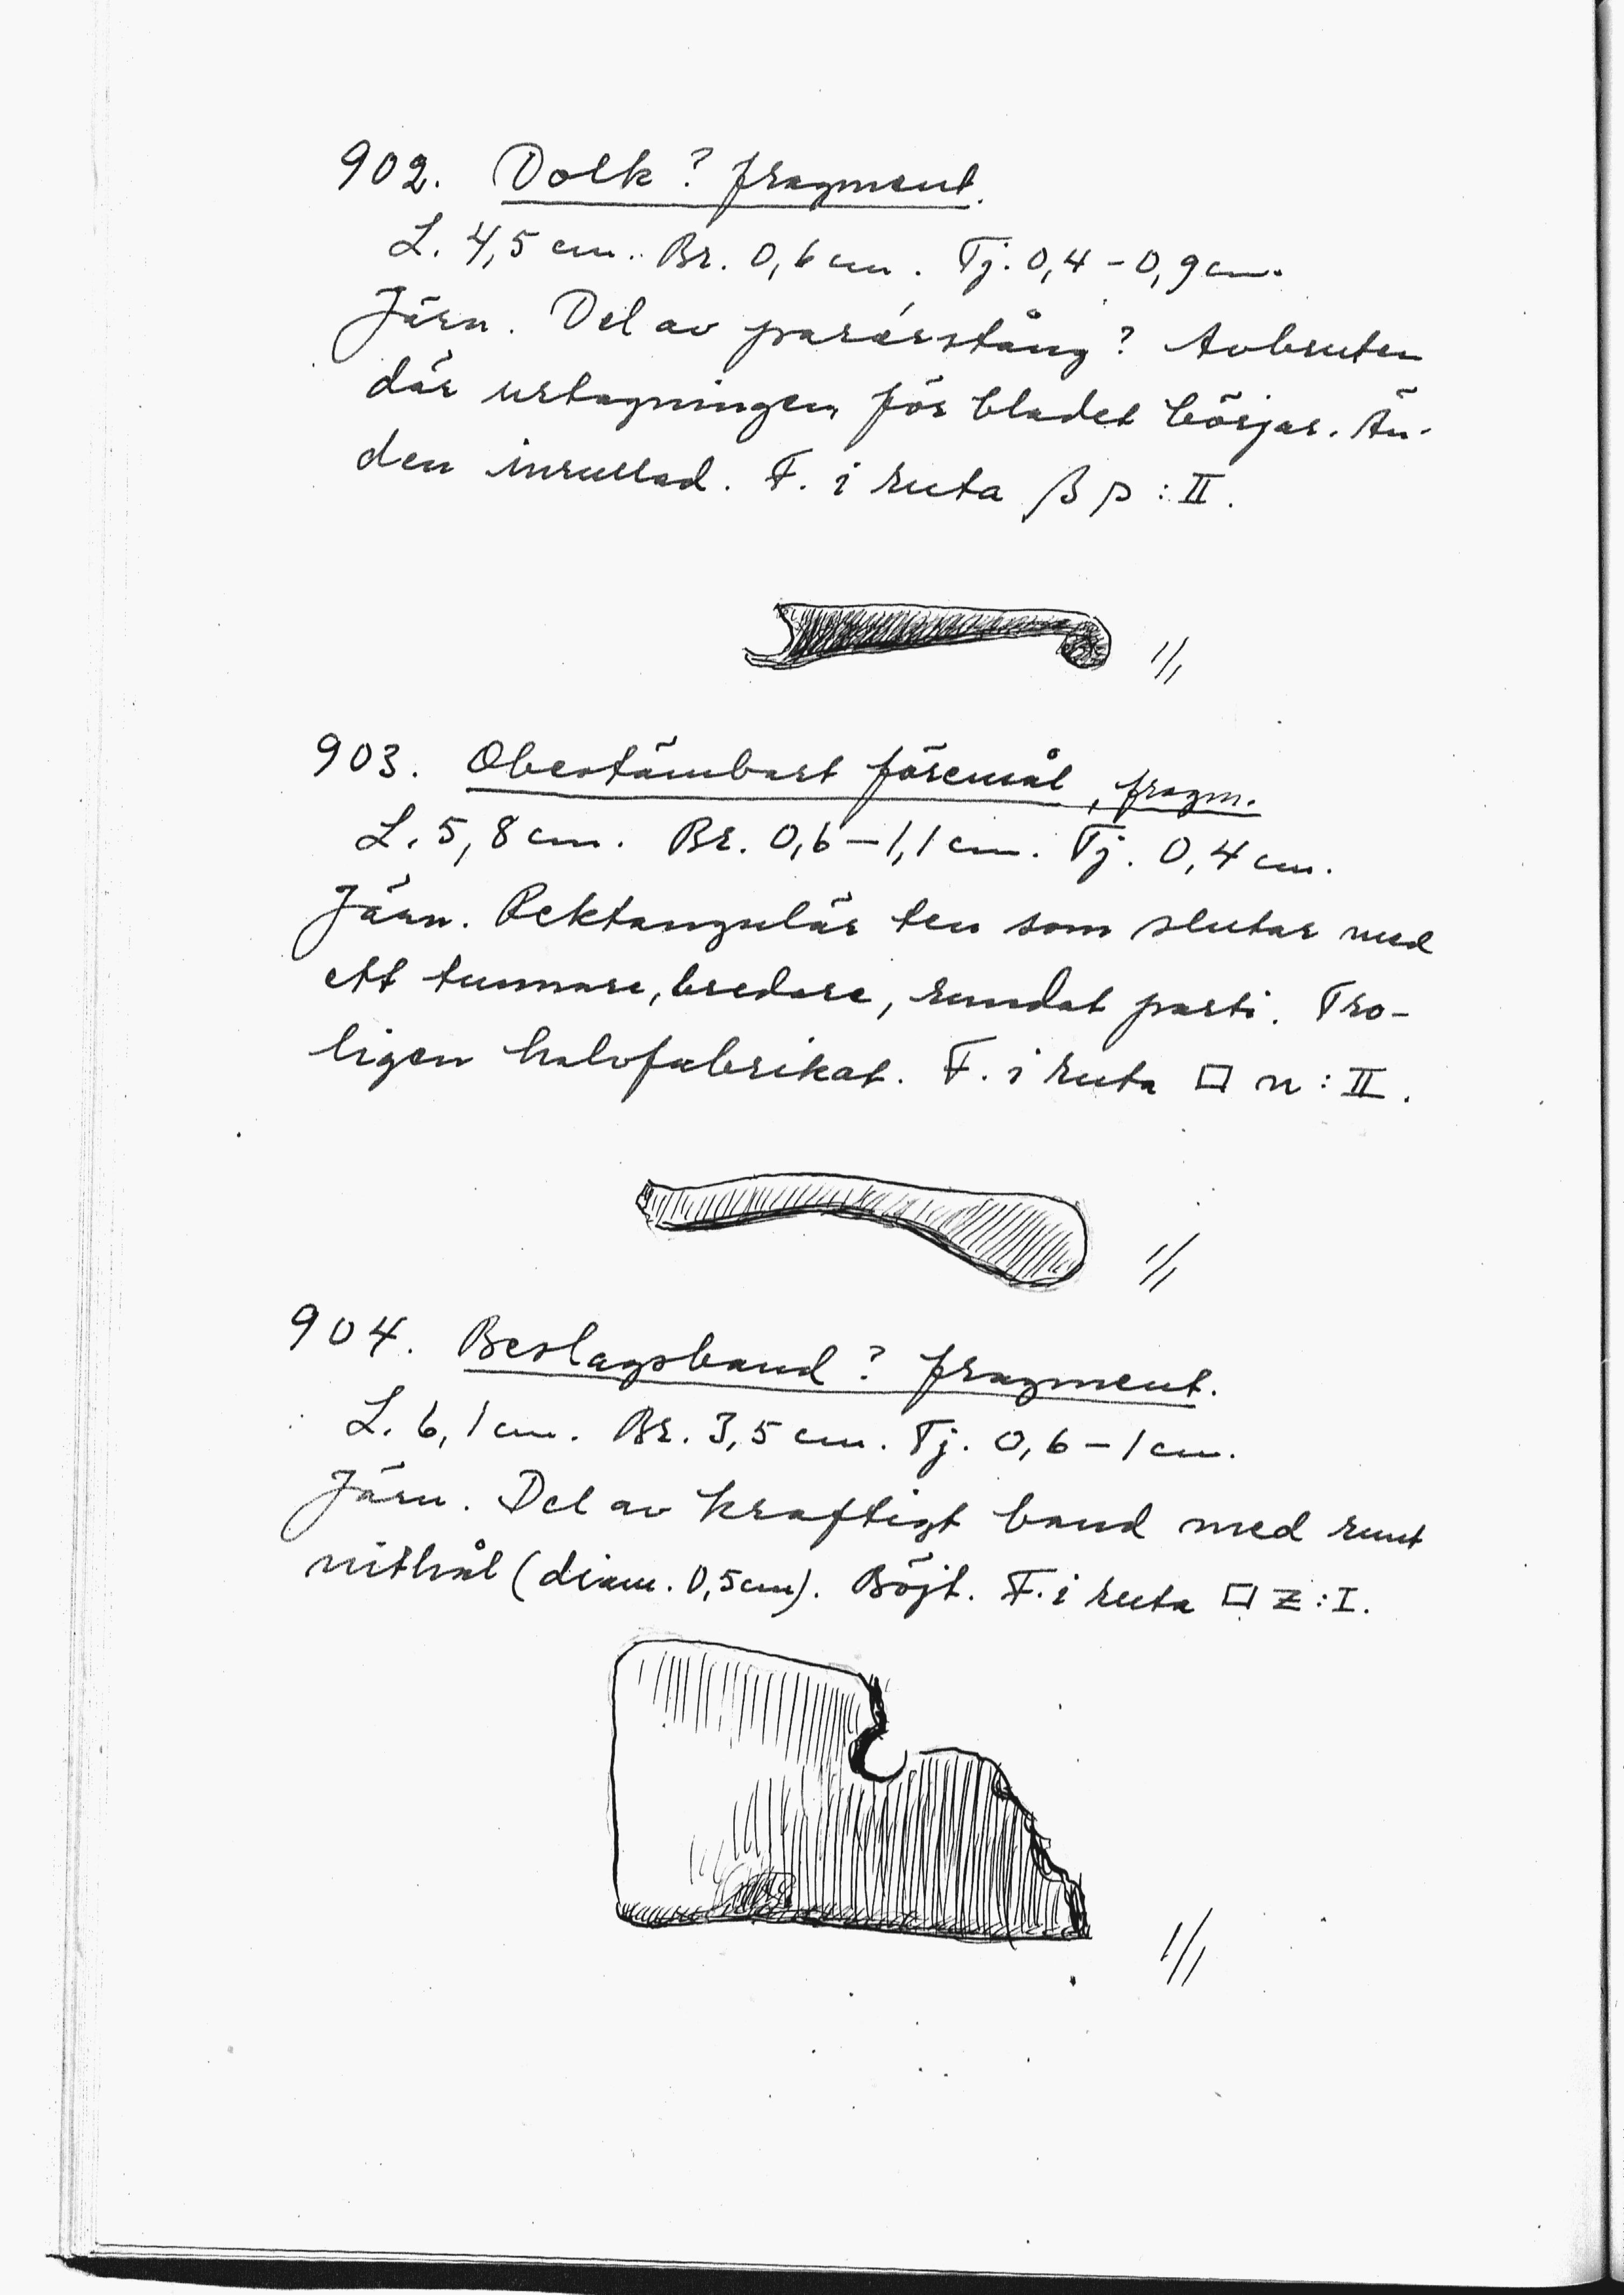 902. Dolk? fragment.
L. 4,5 cm. Br. 0,6 cm. Tj. 0,4-0,9 cm.
Järn. Del av parérstång? Avbruten
där urtagningen för bladet börjar. Än-
den inrullad. F. i ruta β p : II.
1/1
903. Obestämbart föremål, fragm.
L. 5,8 cm. Br. 0,6-1,1 cm. Tj. 0,4 cm.
Järn. Rektangulär ten som slutar med
ett tunnare, bredare, rundat parti. Tro-
ligen halvfabrikat. F. i ruta □ n : II.
1/1
904. Beslagsband? fragment.
L. 6,1 cm. Br. 3,5 cm. Tj. 0,6-1 cm.
Järn. Del av kraftigt band med runt
nithål (diam. 0,5 cm). Böjt. F. i ruta □ z : I.
1/1